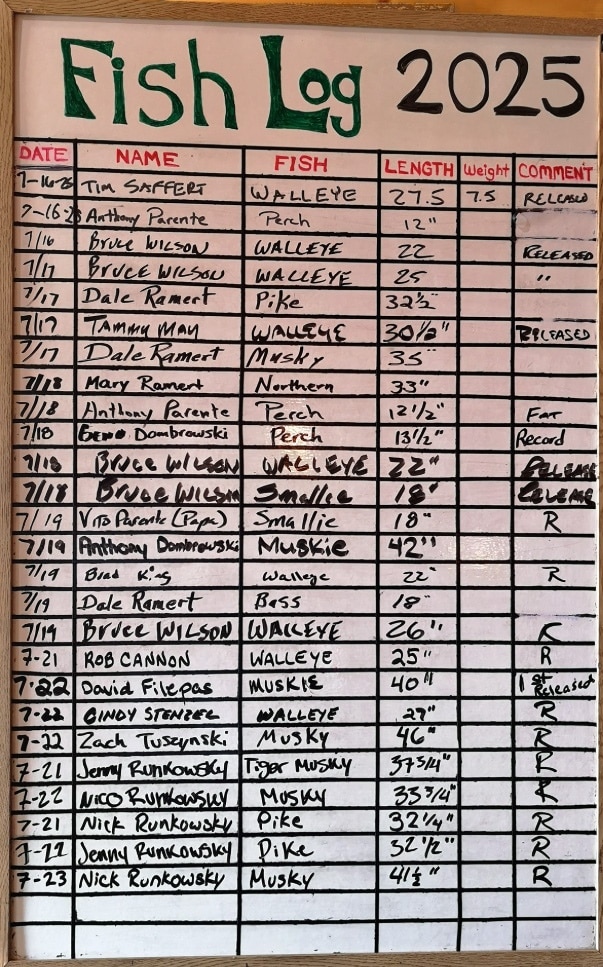 Fish Log 2025
DATE NAME FISH LENGTH Weight COMMENT
7-16-25 TIM SAFFERT WALLEYE 27.5 7.5 RELEASED
7-16-25 Anthony Parente Perch 12"
7/16 BRUCE WILSON WALLEYE 22 RELEASED
7/17 BRUCE WILSON WALLEYE 25 "
7/17 Dale Ramert Pike 32½"
7/17 TAMMY MAY WALLEYE 30 1/2" RELEASED
7/17 Dale Ramert Musky 35"
7/18 Mary Ramert Northern 33"
7/18 Anthony Parente Perch 12 1/2" FAT
7/18 Dombrowski Perch 13 1/2" Record
7/18 BRUCE WILSON WALLEYE 22" RELEASE
7/18 BRUCE WILSON Smallie 18" RELEASE
7/19 Vito Parente (Papa) Smallie 18" R
7/19 Anthony Dombrowski Muskie 42"
7/19 Brad King Walleye 22" R
7/19 Dale Ramert Bass 18"
7/19 BRUCE WILSON WALLEYE 26" R
7-21 ROB CANNON WALLEYE 25" R
7-22 David Filepas MUSKIE 40" 1st Released
7-22 CINDY STENZEL WALLEYE 27" R
7-22 Zach Tuszynski Musky 46" R
7-21 Jenny Runkowsky Tiger Musky 37 3/4" R
7-22 NICO RUNKOWSKY MUSKY 33 3/4" R
7-21 Nick Runkowsky Pike 32 1/4" R
7-22 Jenny Runkowsky Pike 32 1/2" R
7-23 Nick Runkowsky Musky 41½" R